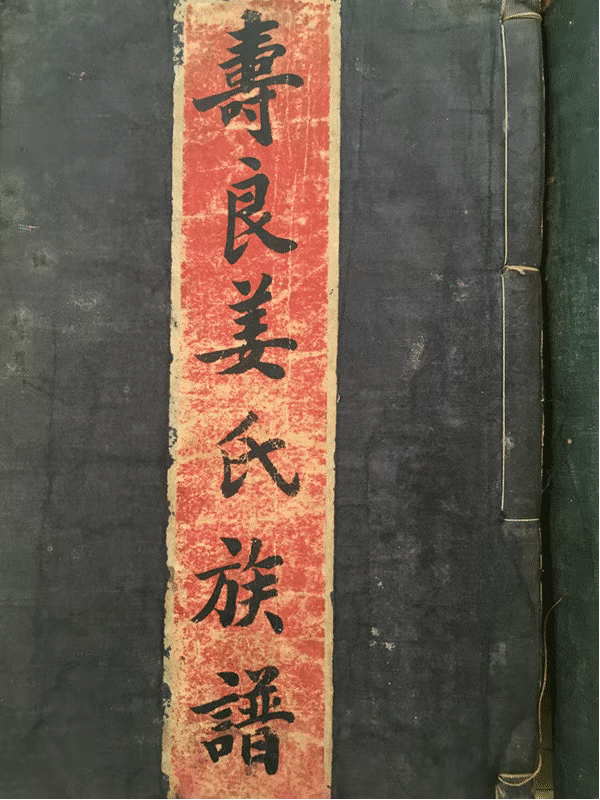 壽良姜氏族譜